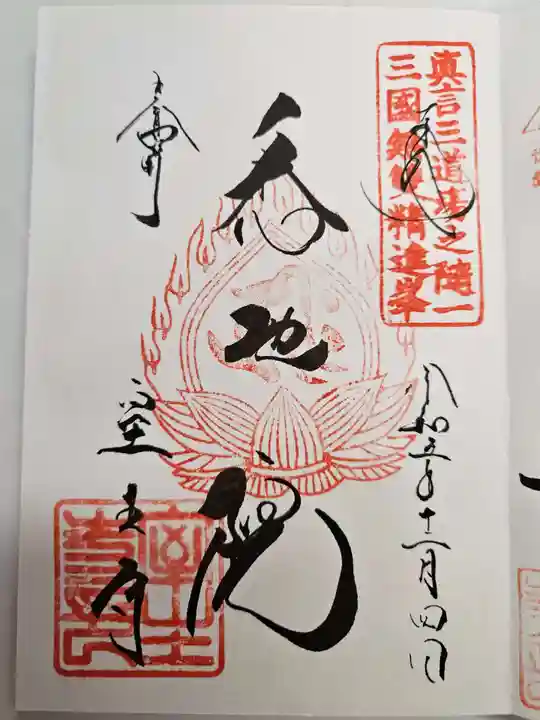 真言三道場之随一
三國無雙精進峯
奉拝
令和五年十二月四日
悉地院
女人高野
室生寺